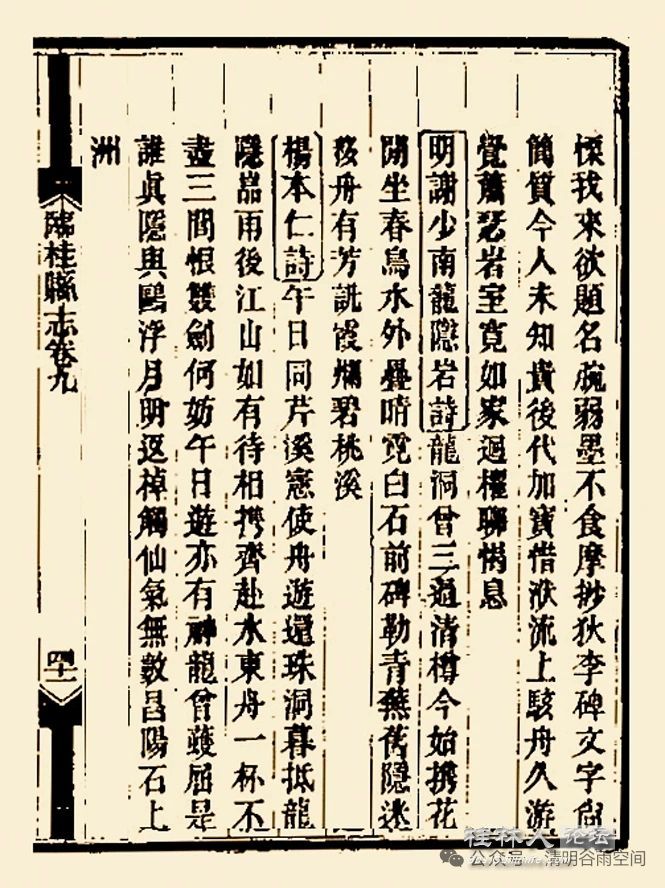 慄我來欲題名疏弱墨不食摩挲狄李碑文字尙
簡質今人未知貴後代加寶惜洑流上駭舟久游
覺蕭瑟岩室竟如家迴櫂聊惕息
明謝少南龍隱岩詩龍洞曾三過清樽今始携花
閒坐春鳥水外疊晴霓白石前碑勒青蕪舊隱迷
移舟有芳訊霞爛碧桃溪
楊本仁詩午日同芹溪憲使舟遊還珠洞暮抵龍
隱嵓雨後江山如有待相携齊赴水東舟一杯不
盡三閭恨雙劍何妨午日遊亦有神龍曾蠖屈是
誰眞隱與鷗浮月明返棹觸仙氣無數昌陽石上
洲
臨桂縣志卷九
四十一
桂林人论坛
公众号·清明谷雨空间